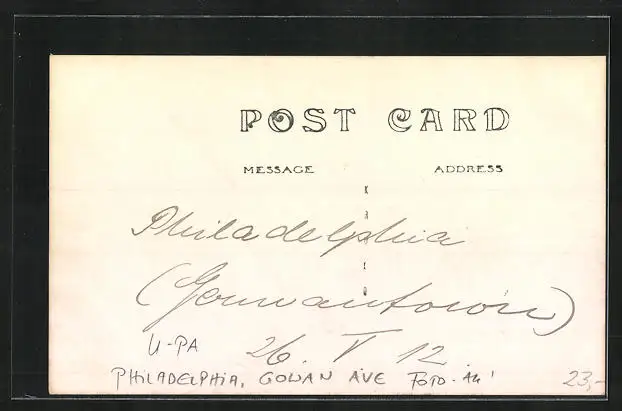 POST CARD
MESSAGE ADDRESS
Philadelphia
(Germantown)
U-PA 26. V 12
PHILADELPHIA, GOWAN AVE FOTO-AK'
23,-